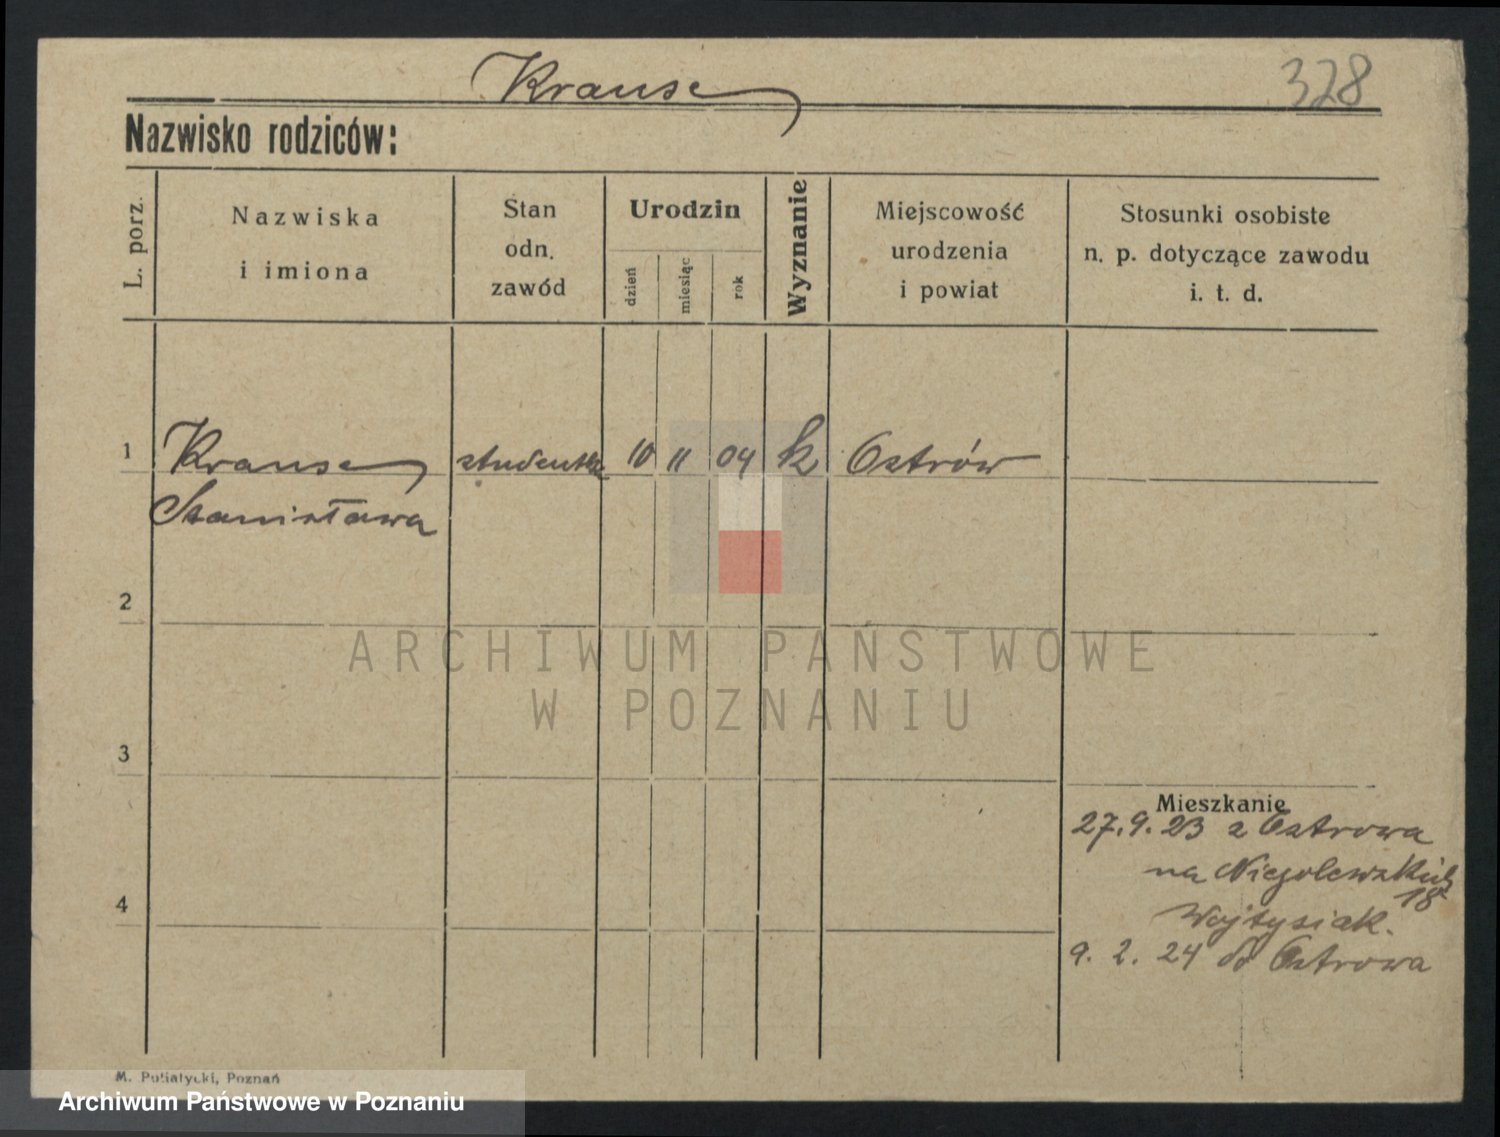 Krause
328
Nazwisko rodziców:
L. porz.
Nazwiska
i imiona
Stan
odn.
zawód
Urodzin
dzień
miesiąc
rok
Wyznanie
Miejscowość
urodzenia
i powiat
Stosunki osobiste
n. p. dotyczące zawodu
i. t. d.
1 Krause studentka 10 11 04 k Ostrów
Stanisława
2
3
4
Mieszkanie
27.9.23 z Ostrowa
na Niegolewskich
18
Wojtysiak.
9. 2. 24 do Ostrowa
M. Putiatycki, Poznań
ARCHIWUM PAŃSTWOWE
W POZNANIU
Archiwum Państwowe w Poznaniu